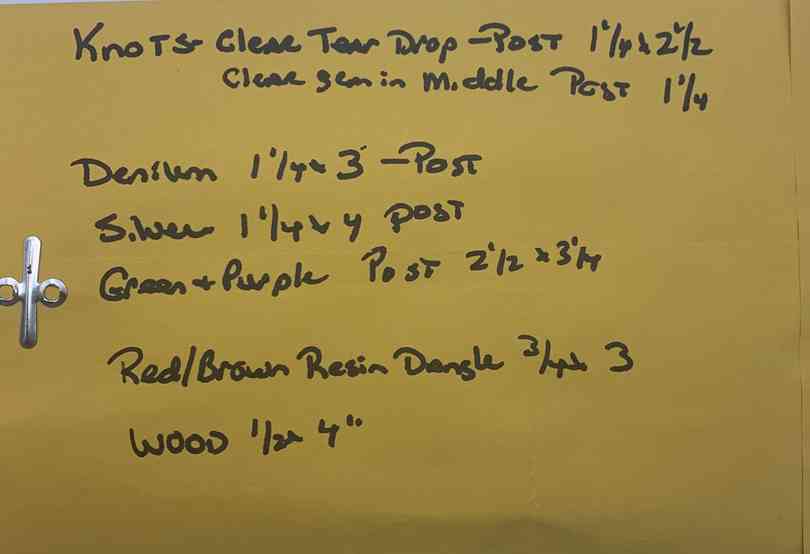 Knots - Clear Tear Drop - Post 1 1/4 x 2 1/2
Clear gem in Middle Post 1 1/4
Denium 1 1/4 x 3 - Post
Silver 1 1/4 x 4 post
Green + Purple Post 2 1/2 x 3 1/4
Red/Brown Resin Dangle 3/4 x 3
WOOD 1/2 x 4"